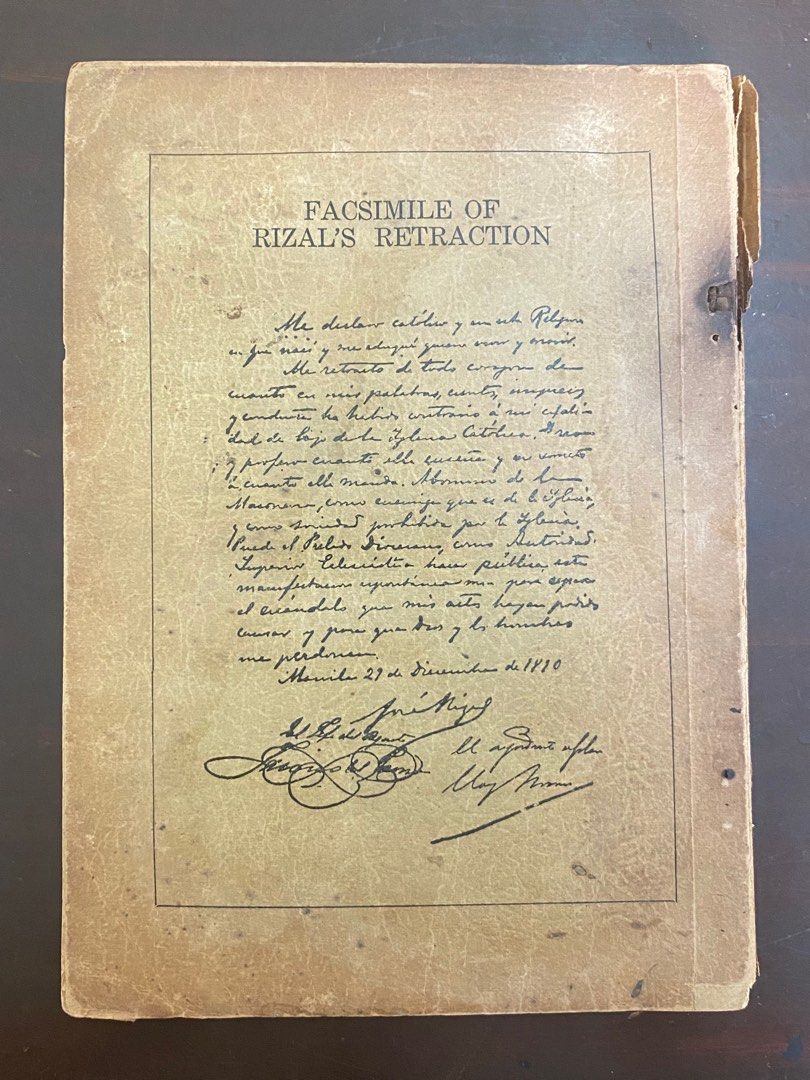 FACSIMILE OF
RIZAL'S RETRACTION
Me declaro católico y en esta Religion
en que nací y me eduqué quiero vivir y morir.
Me retracto de todo corazon de
cuanto en mis palabras, escritos, impresos
y conducta ha habido contrario á mi cali-
dad de hijo de la Iglesia Católica. Creo
y profeso cuanto ella enseña y me someto
á cuanto ella manda. Abomino de la
Masoneria, como enemiga que es de la Iglesia,
y como sociedad prohibida por la Iglesia.
Puede el Prelado Diocesano, como Autoridad
Superior Eclesiástica hacer pública esta
manifestacion espontánea mia para reparar
el escándalo que mis actos hayan podido
causar y para que Dios y los hombres
me perdonen.
Manila 29 de Diciembre de 1890
José Rizal
El Jefe del Piquete
Juan del Fresno
El ayudante de Plaza
Eloy Moure